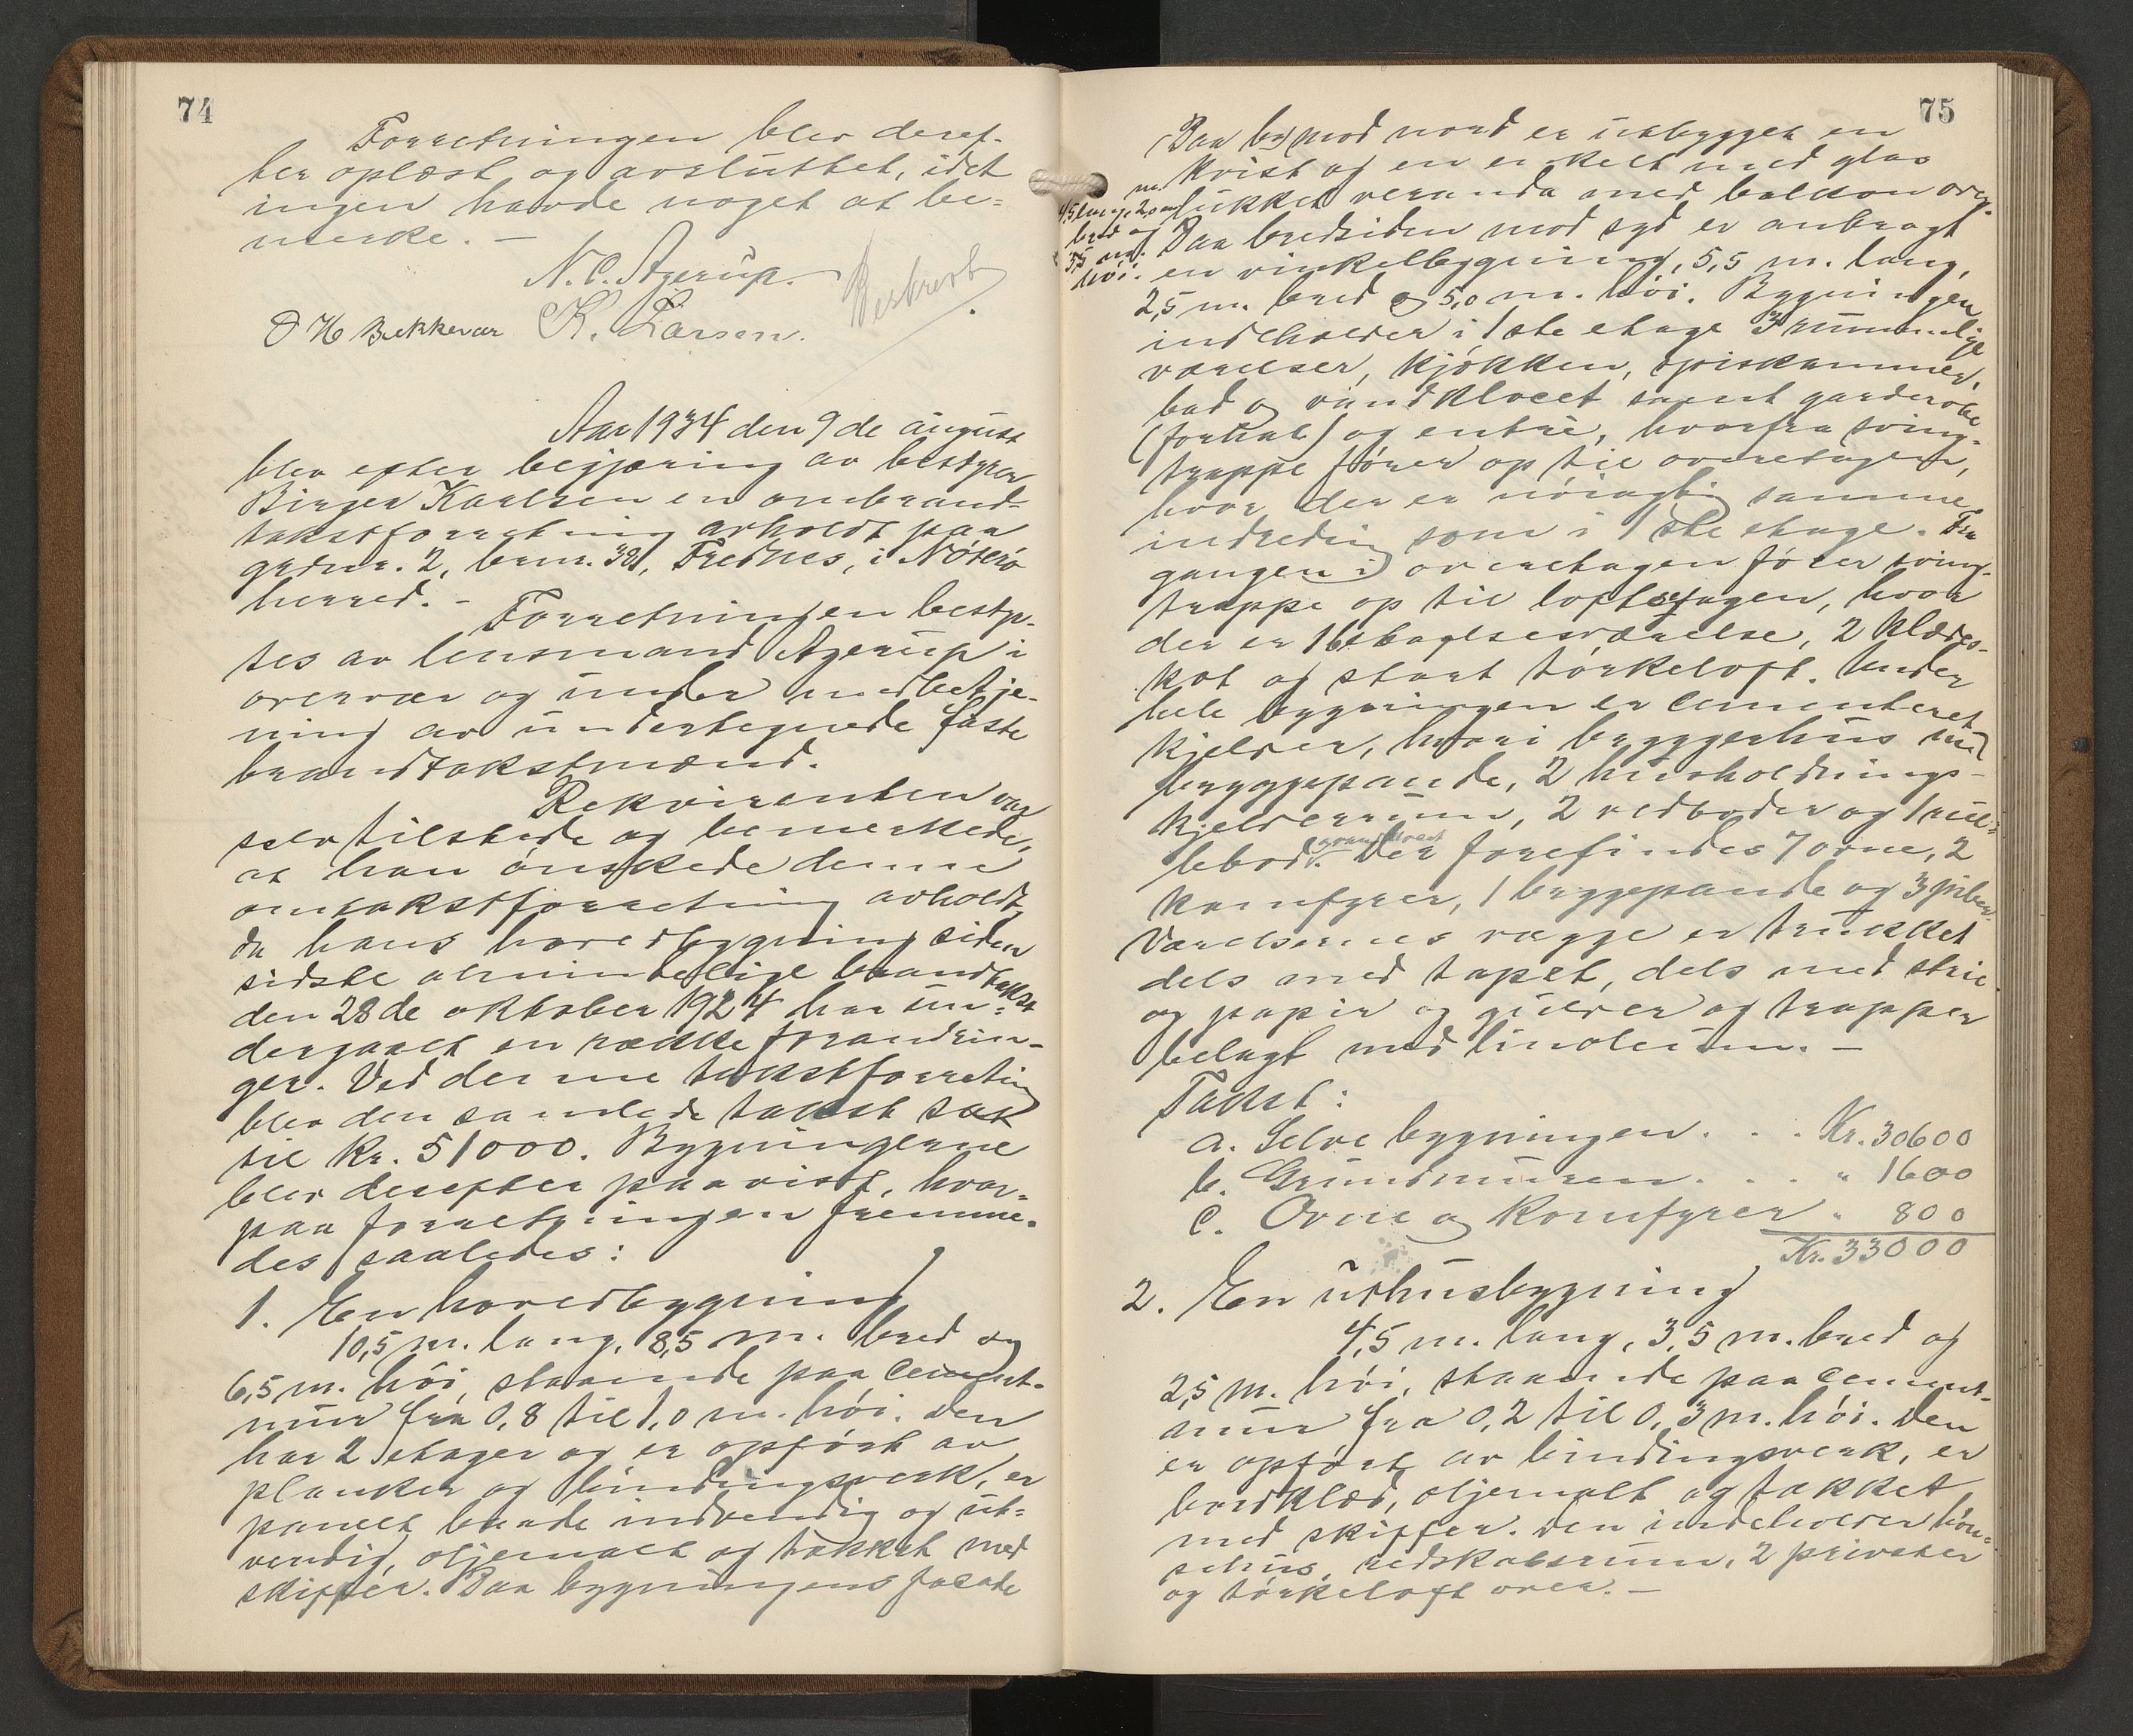 74
Forretningen blev deref-
ter oplæst og avsluttet, idet
ingen havde noget at be-
merke. —
N. C. Agerup.
O H Bekkevar K. Larsen.
Beskrevet
Aar 1934 den 9de august
blev efter begjæring av bestyrer
Birger Karlsen en ombrand-
takstforretning avholdt paa
gaardnr. 2, brnr. 38, Frednes, i Nøterø
herred. -
Forretningen besty-
res av lensmand Agerup i
overvær og under medbetje-
ning av undertegnede faste
brandtakstmænd.
Rekvirenten var
selv tilstede og bemerkede,
at han ønskede denne
omtakstforretning avholdt,
da hans hovedbygning siden
sidste almindelige brandtakst
den 28de oktober 1924 har un-
dergaaet en række forandrin-
ger. Ved denne takstforretning
blev den samlede takst sat
til Kr. 51000. Bygningerne
blev derefter paavist, hvor-
paa forretningen fremme-
des saaledes:
1. En hovedbygning
10,5 m. lang, 8,5 m. bred og
6,5 m. høi, staaende paa cement-
mur fra 0,8 til 1,0 m. høi. Den
har 2 etager og er opført av
planker og bindingsverk, er
panelt baade indvendig og ut-
vendig, oljemalt og tækket med
skiffer. Paa bygningens facade
75
Paa by mod nord er utbygget en
kvist og en enkelt med glas
lukket veranda med balkon over,
m
4,5 lang, 2,0 m
bred og
3,5 m.
høi.
Paa bredsiden mod syd er anbragt
en vinkelbygning, 5,5 m. lang,
2,5 m. bred og 5,0 m. høi. Bygningen
indholder i 1ste etage 3 rummelige
værelser, kjøkken, spiskammer,
bad og vandklocet samt garderobe
(forhal) og entré, hvorfra sving-
trappe fører op til overetagen,
hvor der er nøiagtig samme
indredning som i 1ste etage. Fra
gangen i overetagen fører sving-
trappe op til loftsetagen, hvor
der er 1 beboelsesværelse, 2 klædes-
kot og stort tørkeloft. Under
hele bygningen er cementeret
kjelder, hvori bryggerhus med
bryggepande, 2 husholdnings-
kjelderrum, 2 vedboder og 1 rul-
lebod. Der forefindes 7 ovne, 2
komfyrer, 1 bryggepande og 3 piber.
Værelsernes vægge er trukket
dels med tapet, dels med strie
og papir og gulver og trapper
belagt med linoleum. —
Takst:
a. Selve bygningen . . . Kr. 30600
b. Grundmuren . . . " 1600
c. Ovne og Komfyrer " 800
Kr. 33000
2. En uthusbygning
4,5 m. lang, 3,5 m. bred og
2,5 m. høi, staaende paa cement-
mur fra 0,2 til 0,3 m. høi. Den
er opført av bindingsverk, er
bordklæd, oljemalt og tækket
med skiffer. Den indeholder høn-
sehus, redskabsrum, 2 privater
og tørkeloft over. —